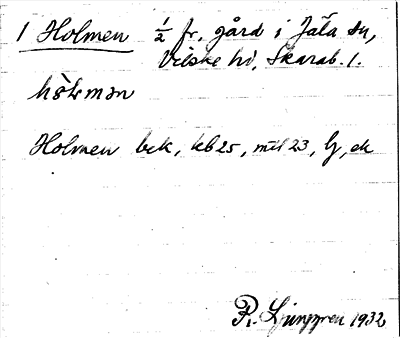 1 Holmen ½ fr. gård i Jäla sn,
Vilske hd, Skarab. l.
Holmen bck, kb25, mtl 23, lj, ek
R. Ljunggren 1932